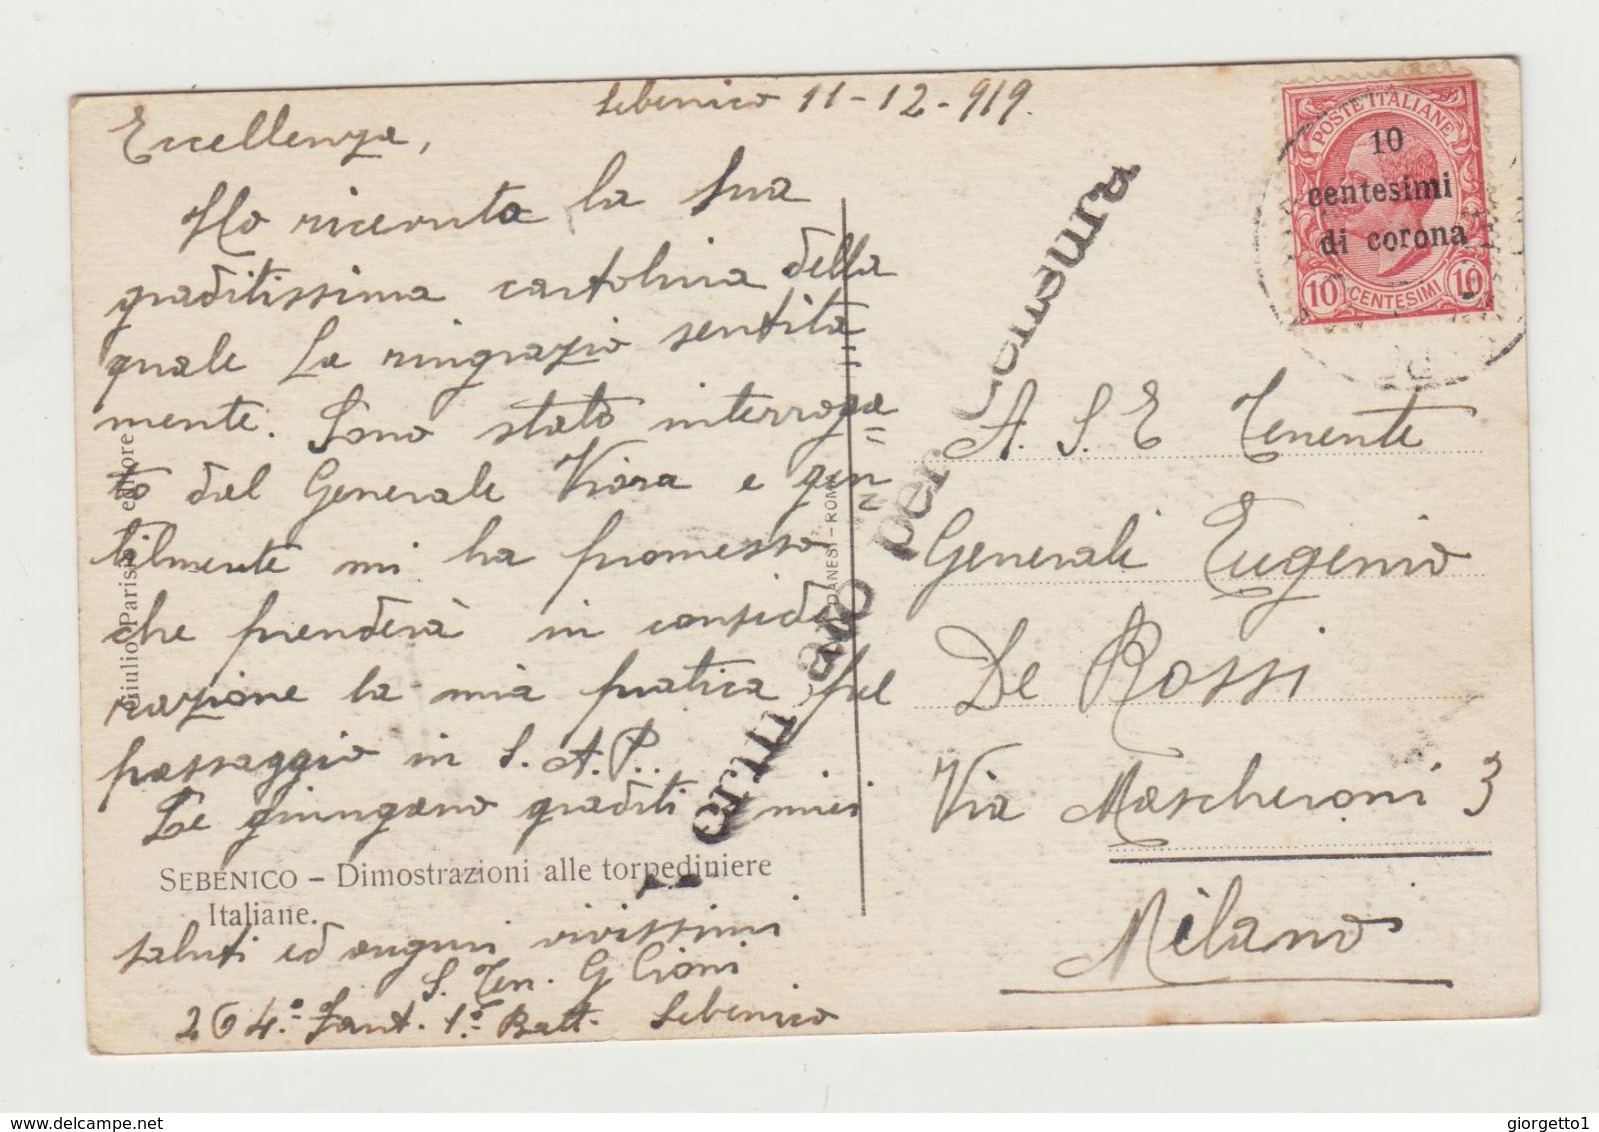 Sebenico 11-12-919.
Eccellenza,
Ho ricevuta la Sua
graditissima cartolina della
quale La ringrazio sentita
mente. Sono stato interroga=
to dal Generale Viora e gen=
tilmente mi ha promesso
che prenderà in conside
razione la mia pratica pel
passaggio in S. A. P..
Le giungano graditi i miei
SEBENICO – Dimostrazioni alle torpediniere
Italiane.
saluti ed auguri vivissimi
S. Ten. G Cioni
264.º Fant. 1.º Batt. Sebenico
Giulio Parisi editore
DANESI – ROMA
per Censura
POSTE ITALIANE
10
centesimi
di corona
10 CENTESIMI 10
A. S. E Tenente
Generale Eugenio
De Rossi
Via Mascheroni 3
Milano
delcampe.net
giorgetto1